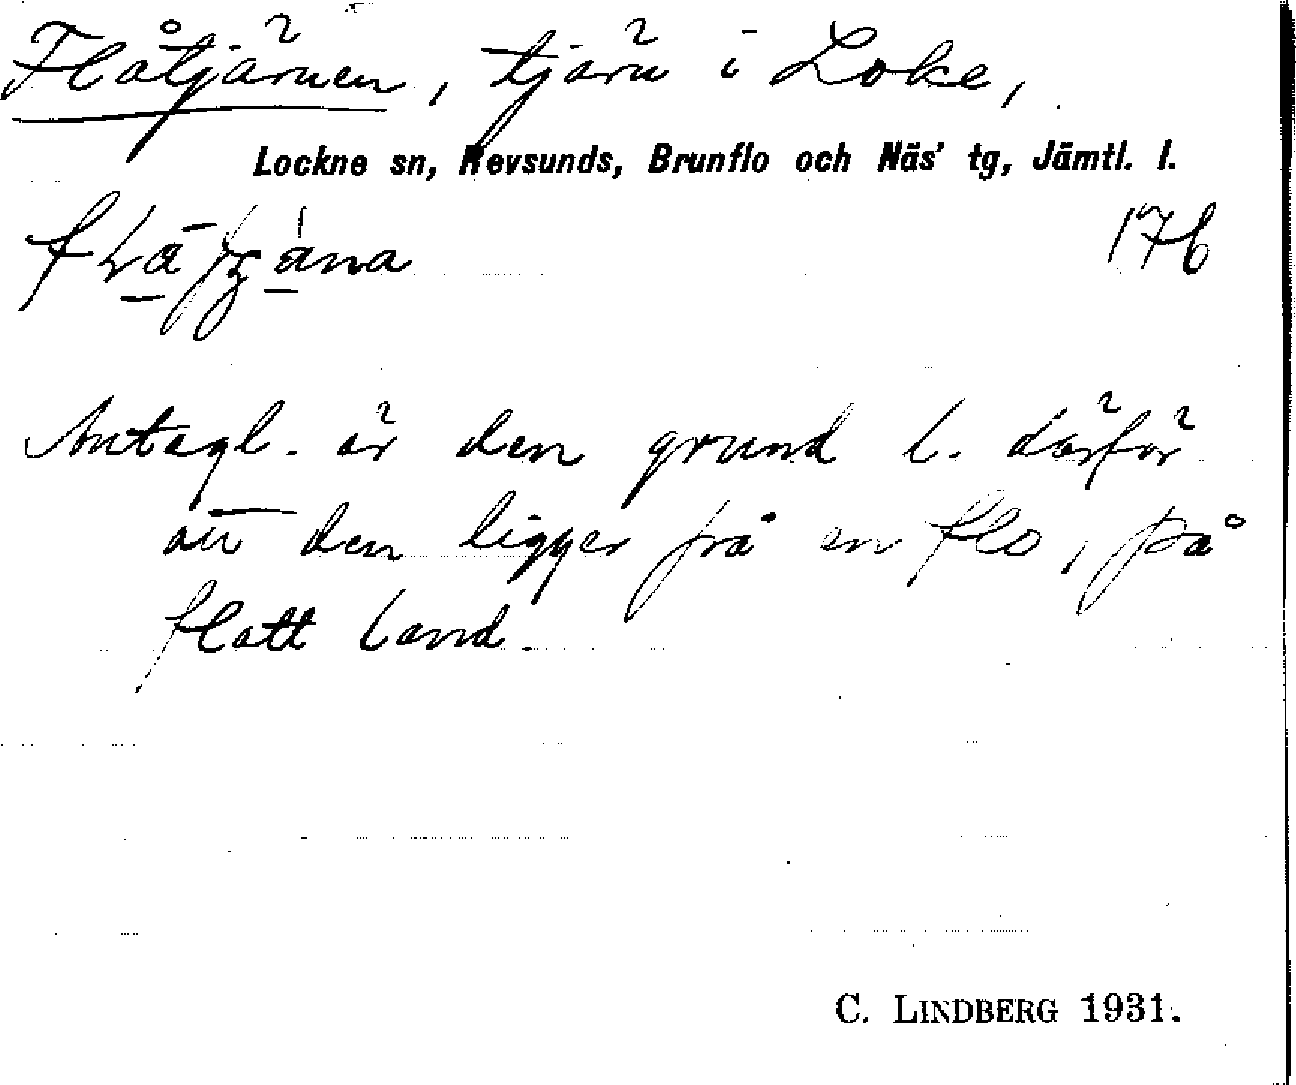 Flåtjärnen, tjärn i Loke,
Lockne sn, Revsunds, Brunflo och Näs' tg, Jämtl. l.
176
Antagl. är den grund l. därför
att den ligger på en flo, på
flatt land.
C. LINDBERG 1931.